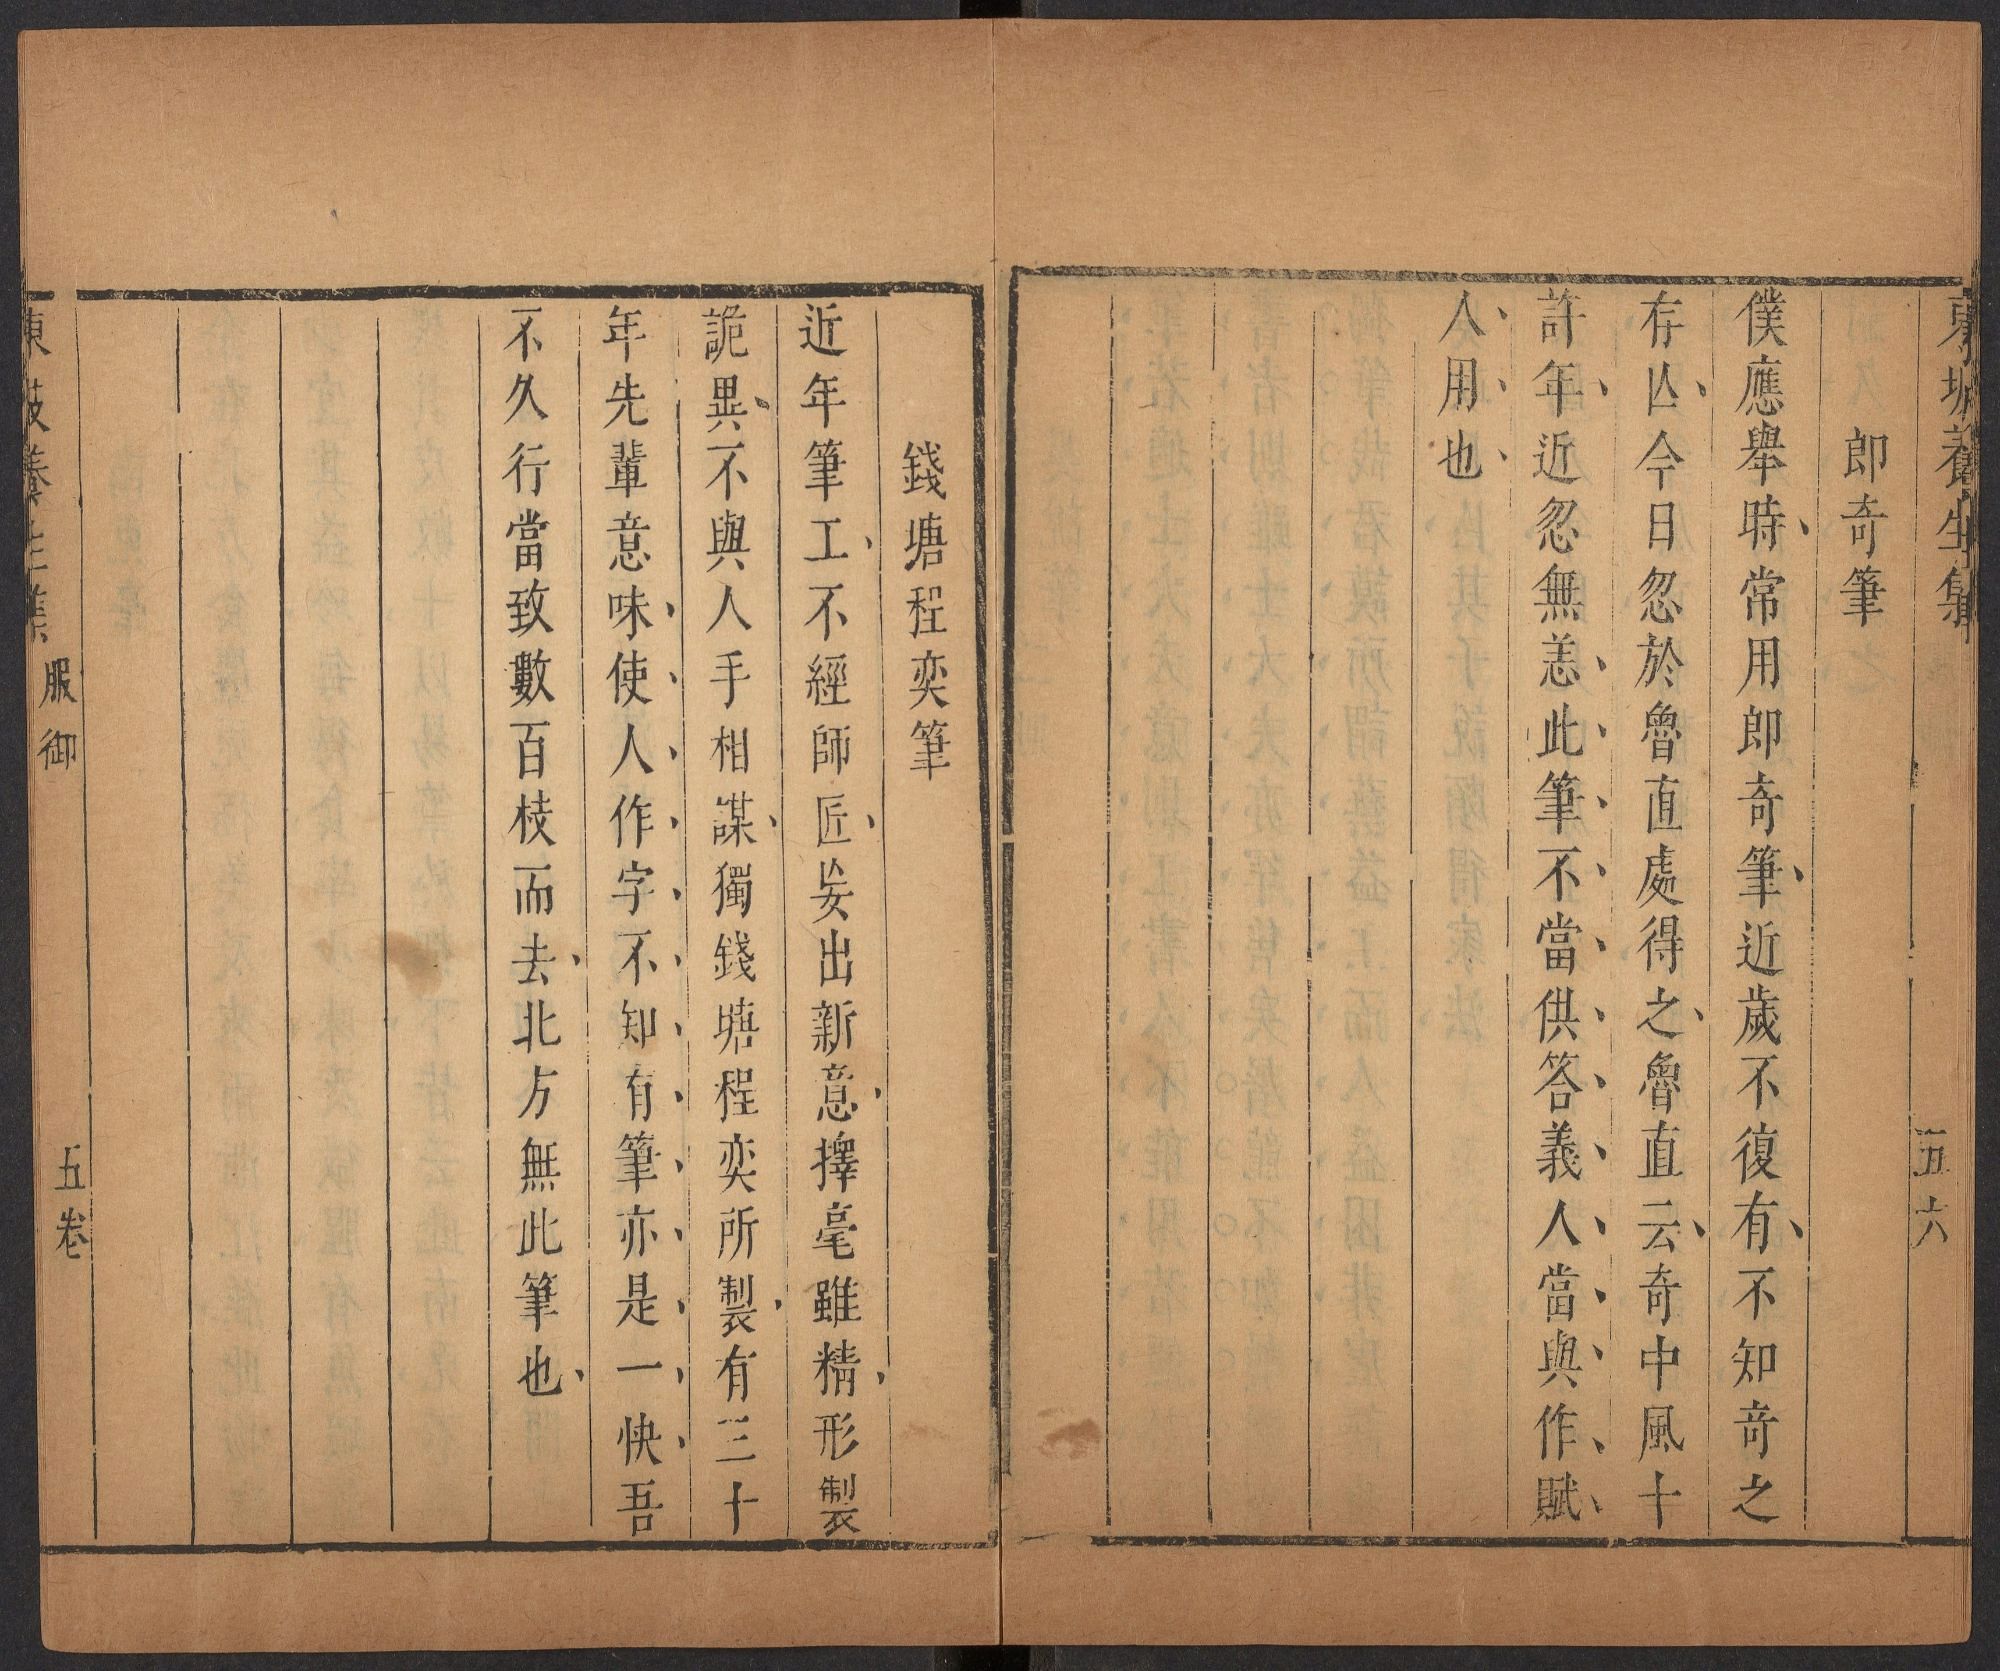 東坡養生集
五六
郎奇筆
僕應舉時常用郎奇筆近歲不復有不知奇之
存亾今日忽於魯直處得之魯直云奇中風十
許年近忽無恙此筆不當供答義人當與作賦
人用也
錢塘程奕筆
近年筆工不經師匠妄出新意擇毫雖精形製
詭異不與人手相謀獨錢塘程奕所製有三十
年先輩意味使人作字不知有筆亦是一快吾
不久行當致數百枝而去北方無此筆也
東坡養生集
服御
五卷